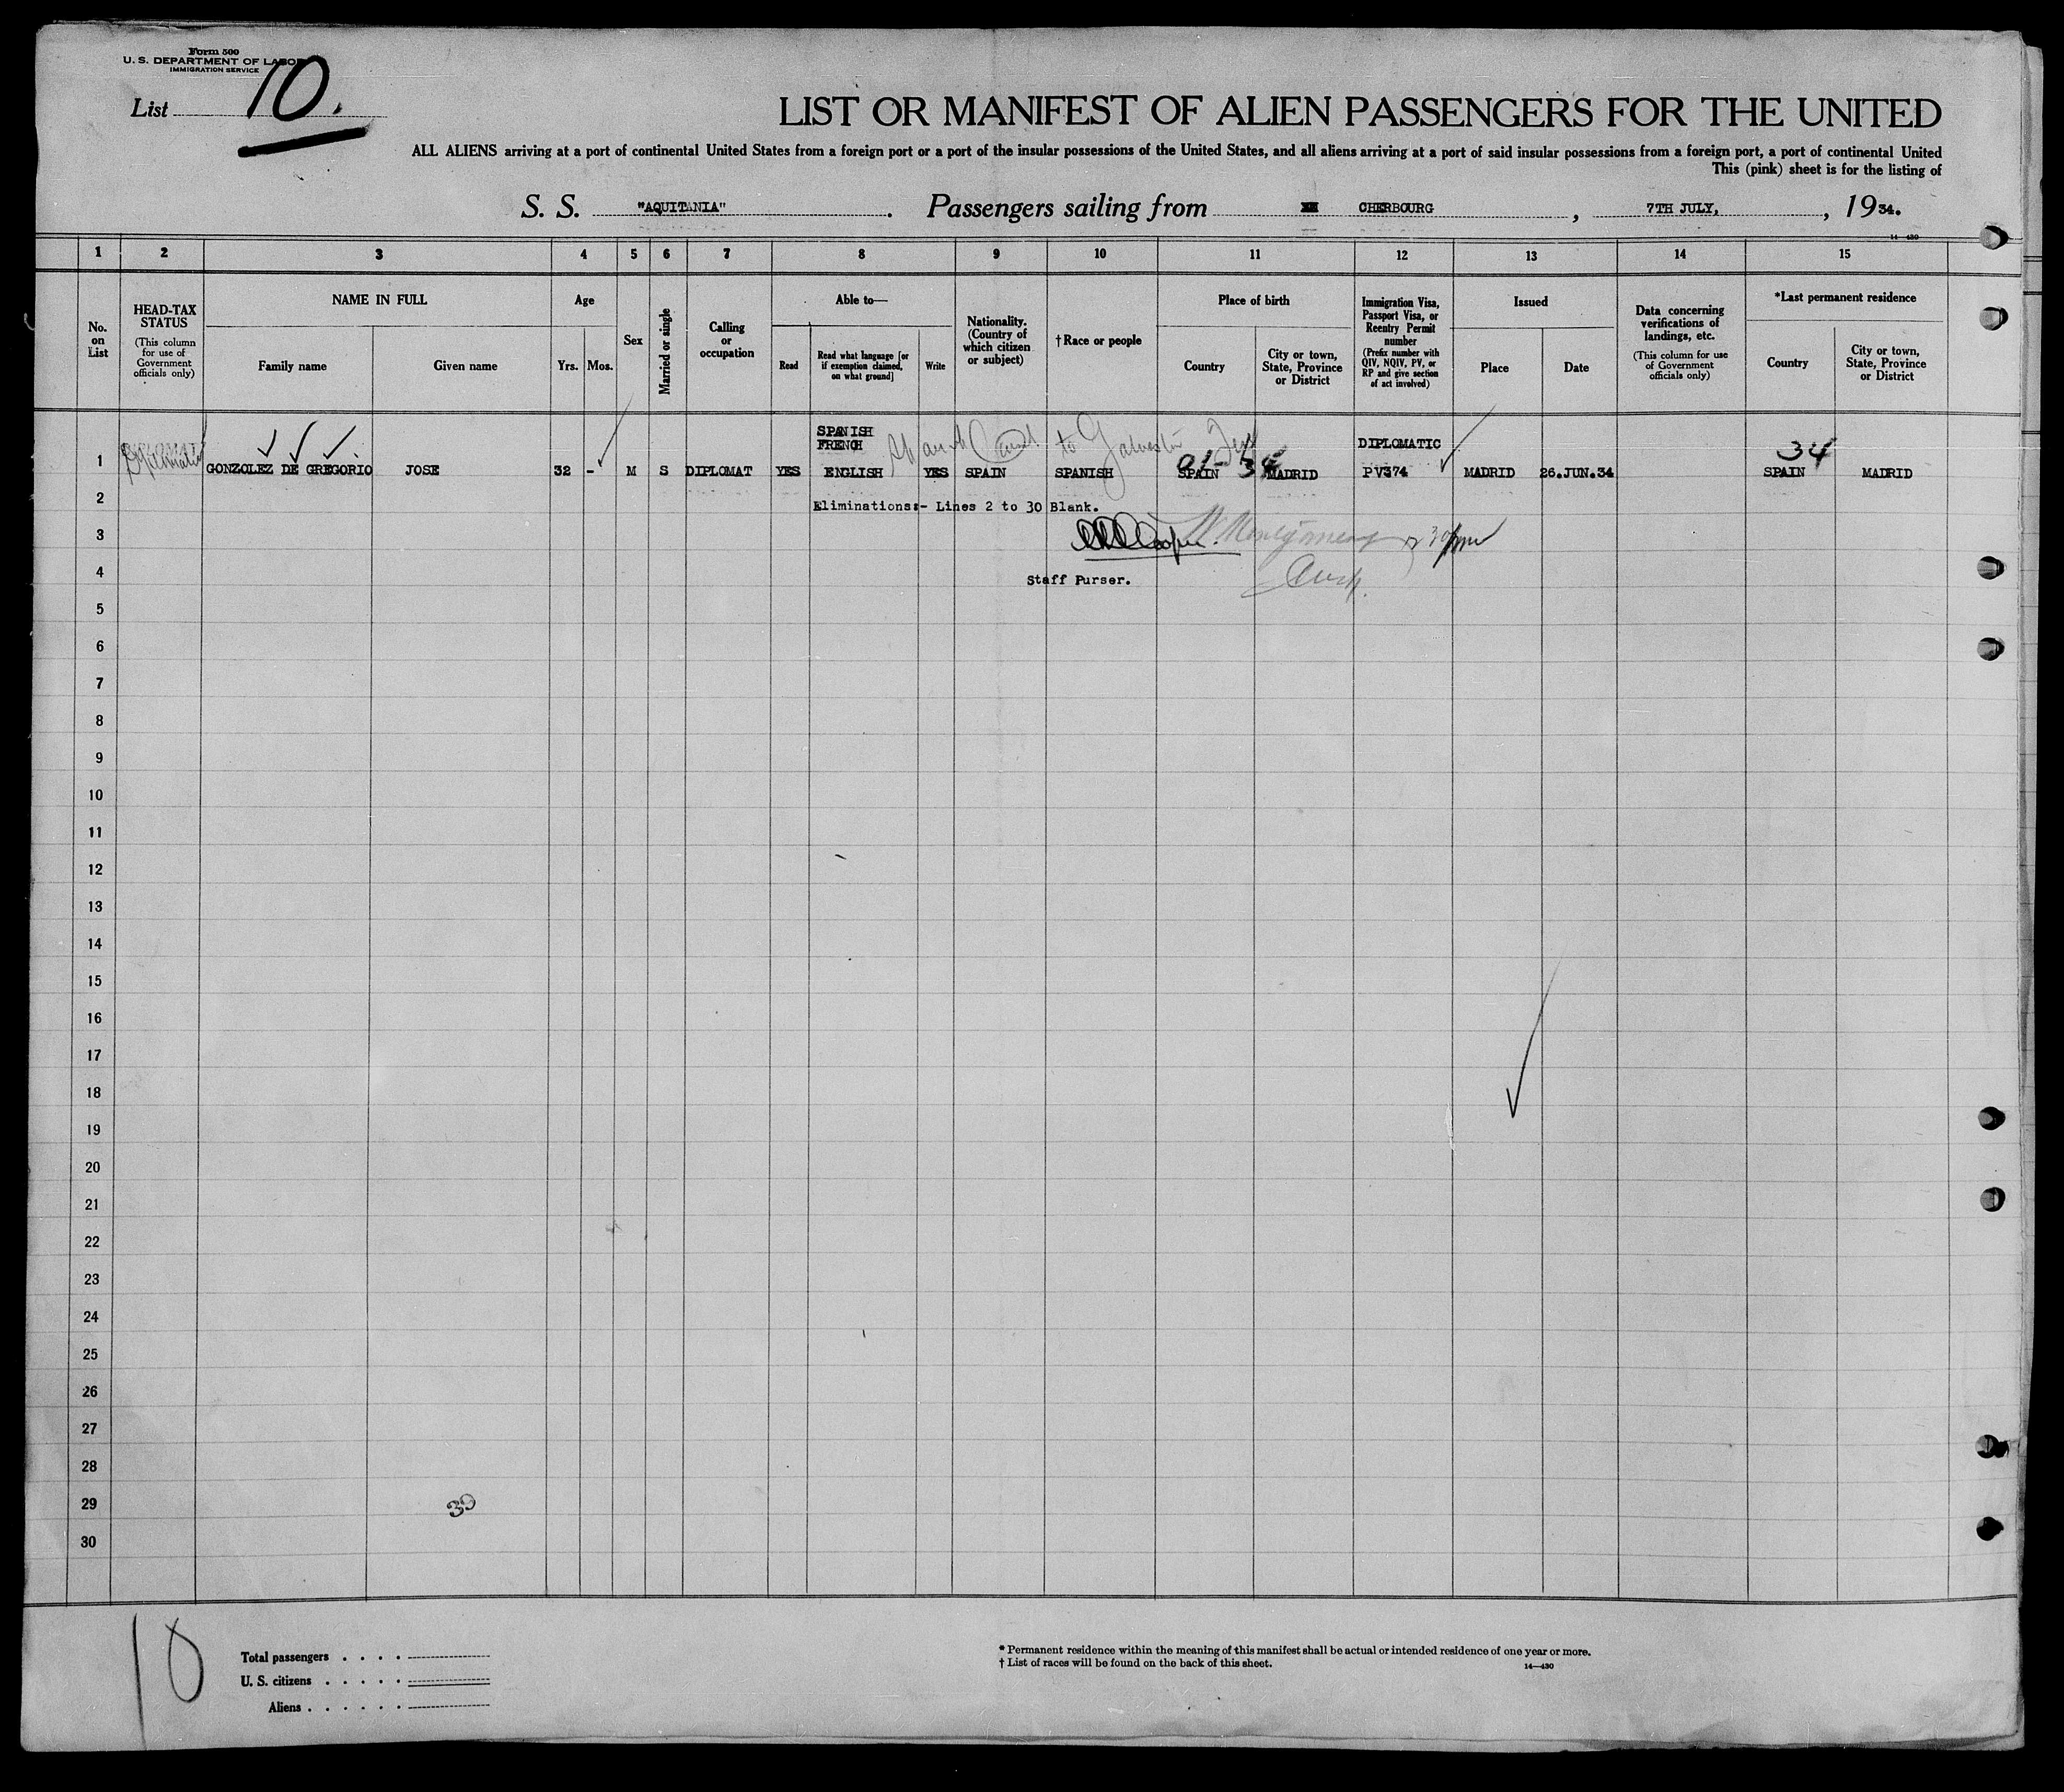 Form 500
U. S. DEPARTMENT OF LABOR
IMMIGRATION SERVICE
List 10.
LIST OR MANIFEST OF ALIEN PASSENGERS FOR THE UNITED
ALL ALIENS arriving at a port of continental United States from a foreign port or a port of the insular possessions of the United States, and all aliens arriving at a port of said insular possessions from a foreign port, a port of continental United
This (pink) sheet is for the listing of
S. S. "AQUITANIA". Passengers sailing from CHERBOURG, 7TH JULY, , 1934.
14—430
1 2 3 4 5 6 7 8 9 10 11 12 13 14 15
No. on List
HEAD-TAX STATUS
(This column for use of Government officials only)
NAME IN FULL
Family name
Given name
Age
Yrs.
Mos.
Sex
Married or single
Calling or occupation
Able to—
Read
Read what language [or if exemption claimed, on what ground]
Write
Nationality. (Country of which citizen or subject)
†Race or people
Place of birth
Country
City or town, State, Province or District
Immigration Visa, Passport Visa, or Reentry Permit number
(Prefix number with QIV, NQIV, PV, or RP and give section of act involved)
Issued
Place
Date
Data concerning verifications of landings, etc.
(This column for use of Government officials only)
*Last permanent residence
Country
City or town, State, Province or District
SPANISH
FRENCH
Spanish Consul to Galveston Tex
DIPLOMATIC
34
1 Diplomatic GONZOLEZ DE GREGORIO JOSE 32 - M S DIPLOMAT YES ENGLISH YES SPAIN SPANISH SPAIN MADRID PV374 MADRID 26.JUN.34 SPAIN MADRID
2 Eliminations:- Lines 2 to 30 Blank.
3 Cooper. Montgomery
4 Staff Purser.
5
6
7
8
9
10
11
12
13
14
15
16
17
18
19
20
21
22
23
24
25
26
27
28
29
30
30
10
Total passengers . . . .
U. S. citizens . . . . .
Aliens . . . . . .
* Permanent residence within the meaning of this manifest shall be actual or intended residence of one year or more.
† List of races will be found on the back of this sheet.
14—430